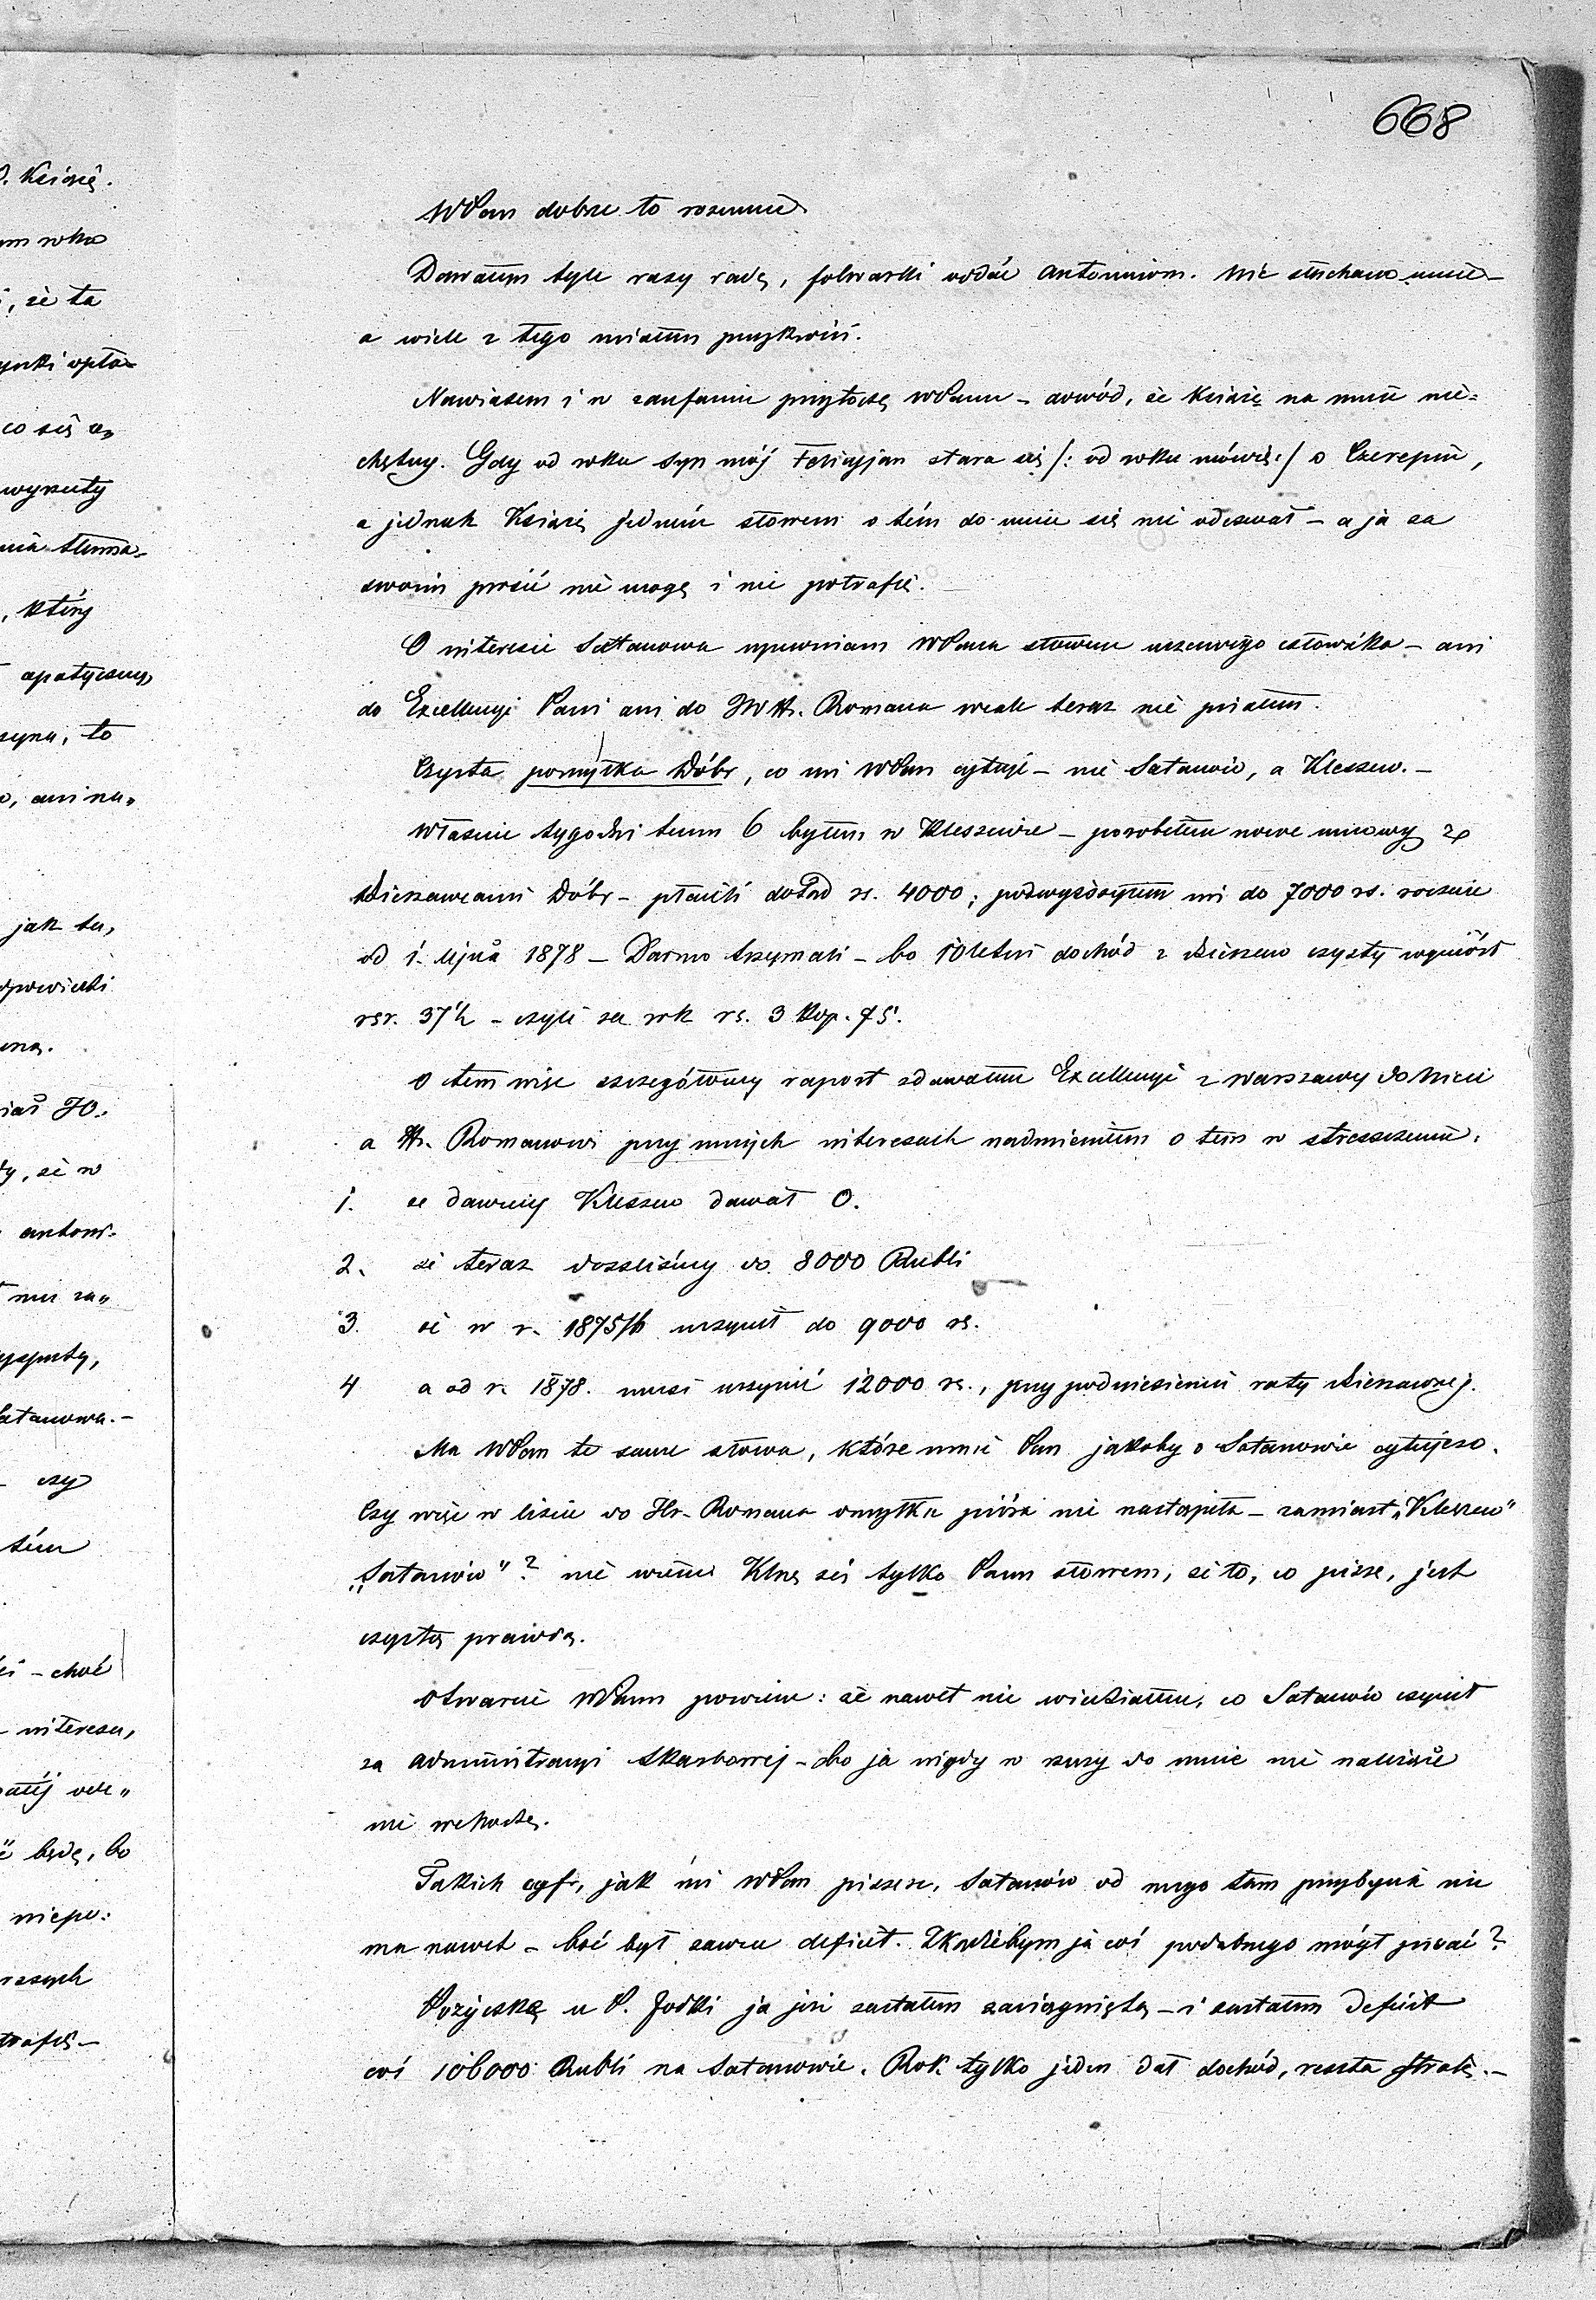 668
WPan dobrze to rozumie
Dawałem tyle razy radę, folwarki oddać Antoninom. Nie słuchano mnie –
a wiele z tego miałem przykrości.
Nawiasem i w zaufaniu przytoczę WPanu – dowód, że Książę na mnie nie=
chętny. Gdy od roku syn mój Felicyjan stara się /: od roku mówię :/ o Czerepin,
a jednak Książę jedném słowem o tém do mnie się nie odezwał – a ja za
swoim prosić nie mogę i nie potrafię.
O interesie Satanowa upewniam WPana słowem uczciwego człowieka – ani
do Excellencyi Pani ani do JW Hr. Romana wcale teraz nie pisałem.
Czysta pomyłka Dóbr, co mi WPan cytuje – nie Satanów, a Kleszew. –
Właśnie tygodni temu 6 byłem w Kleszewie – porobiłem nowe umowy z
Dzierzawcami Dóbr – płacili dotąd rs. 4000; podwyższyłem mi do 7000 rs. rocznie
od 1. lipca 1878 – Darmo trzymali – bo 10letni dochód z Kleszewa czysty wyniósł
rsr. 37½ – czyli za rok rs. 3 kop. 75.
O tem więc szczegółowy raport zdawałem Excellencyi z Warszawy do Nicei
a Hr. Romanowi przy innych interesach nadmieniłem o tem w streszczeniu:
1. że dawniej Kleszew dawał 0.
2. że teraz doszliśmy do 8000 Rubli
3. że w r. 1875/6 uczynił do 9000 rs.
4 a od r. 1878. musi uczynić 12000 rs., przy podniesieniu raty dzierzawnej.
Ma WPan te same słowa, które mnie Pan jakoby o Satanowie cytujesz.
Czy więc w liście do Hr. Romana omyłka pióra nie nastąpiła – zamiast „Kleszew"
„Satanów"? nie wiem. Klnę się tylko Panu słowem, że to, co piszę, jest
czystą prawdą.
Otwarcie WPanu powiem: że nawet nie wiedziałem, co Satanów czynił
za administracyi Skarbowej – bo ja nigdy w rzeczy do mnie nie należące
nie wchodzę.
Takich cyfr, jak mi WPan piszesz, Satanów od mego tam przybycia nie
ma nawet – boć był zawsze deficit. Zkądżebym ja coś podobnego mógł pisać?
Pożyczkę u P. Jodki ja już zastałem zaciągniętą – i zastałem deficit
coś 106000 Rubli na Satanowie. Rok tylko jeden dał dochód, reszta stratę. –